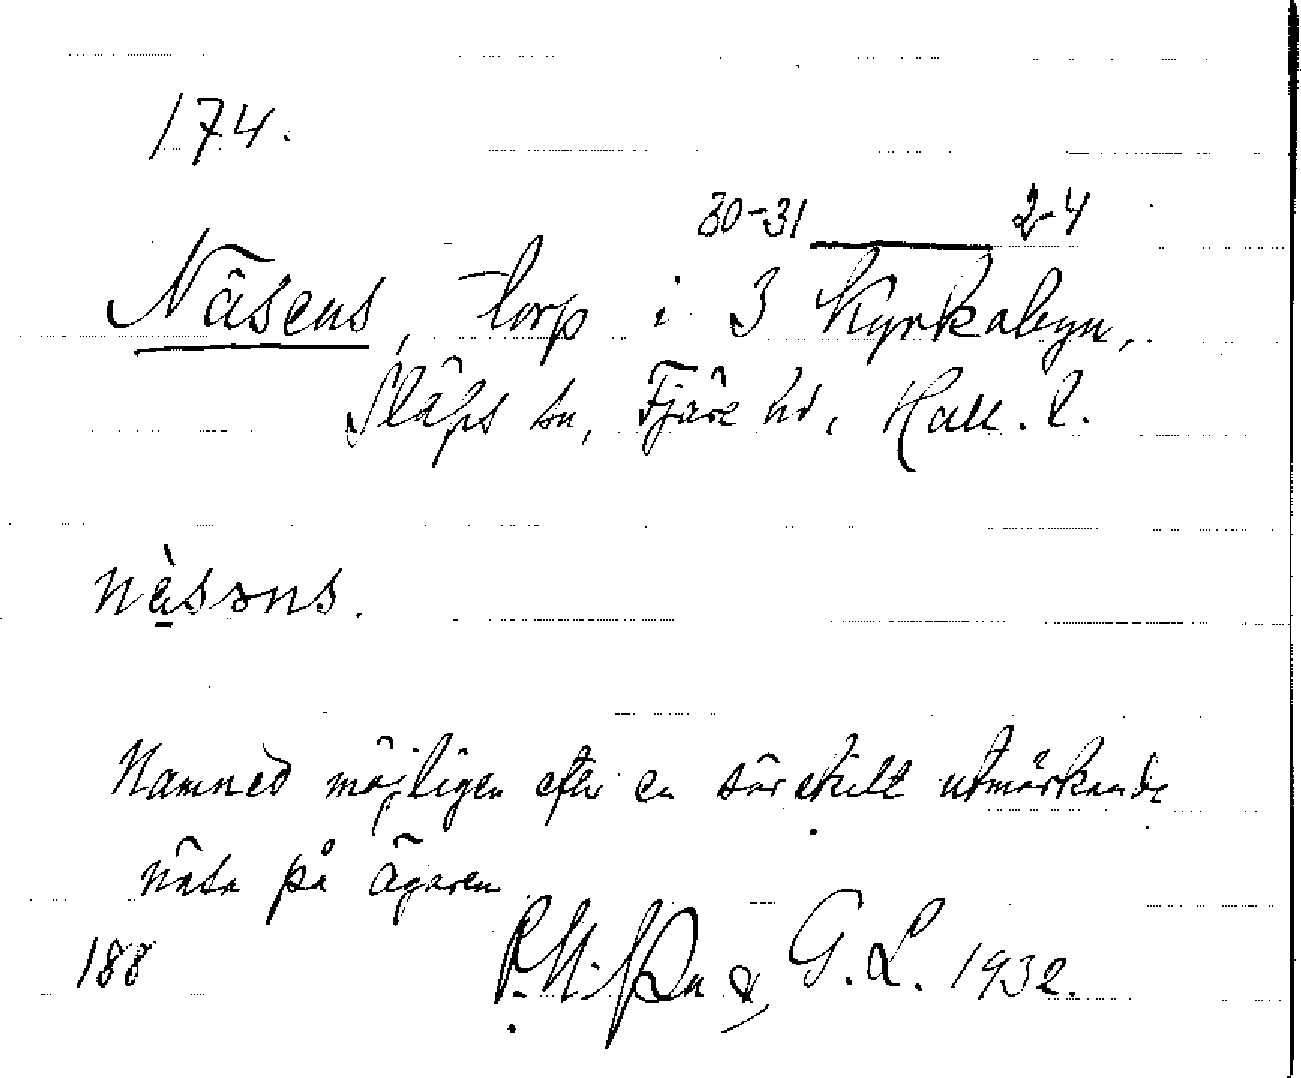 174.
30-31 2-4
Näsens, torp i 3 Kyrkobyn,
Släps sn, Fjäre hd, Hall. l.
näsəns.
Namned möjligen efter en särskilt utmärkande
näsa på ägaren
188 G. L. 1932.